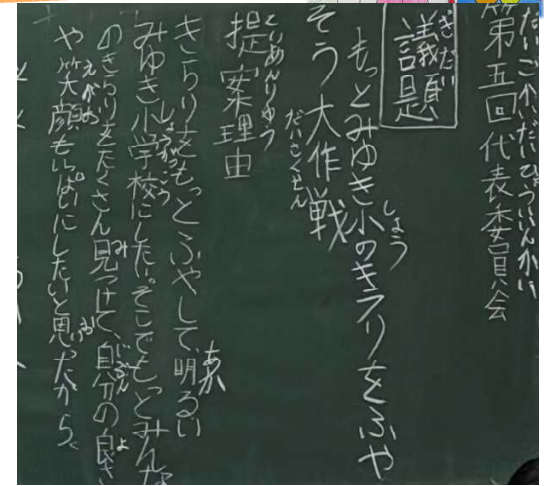 第五回代表委員会
だいごかいだいひょういいんかい
議題
ぎだい
もっとみゆき小のキラリをふや
しょう
そう大作戦
だいさくせん
提案理由
ていあんりゆう
きらりをもっとふやして、明るい
あか
みゆき小学校にしたい。そこでもっとみんな
しょうがっこう
のきらりをたくさん見つけて、自分の良さ
み じぶん よ
や笑顔もいっぱいにしたいと思ったから。
えがお おも